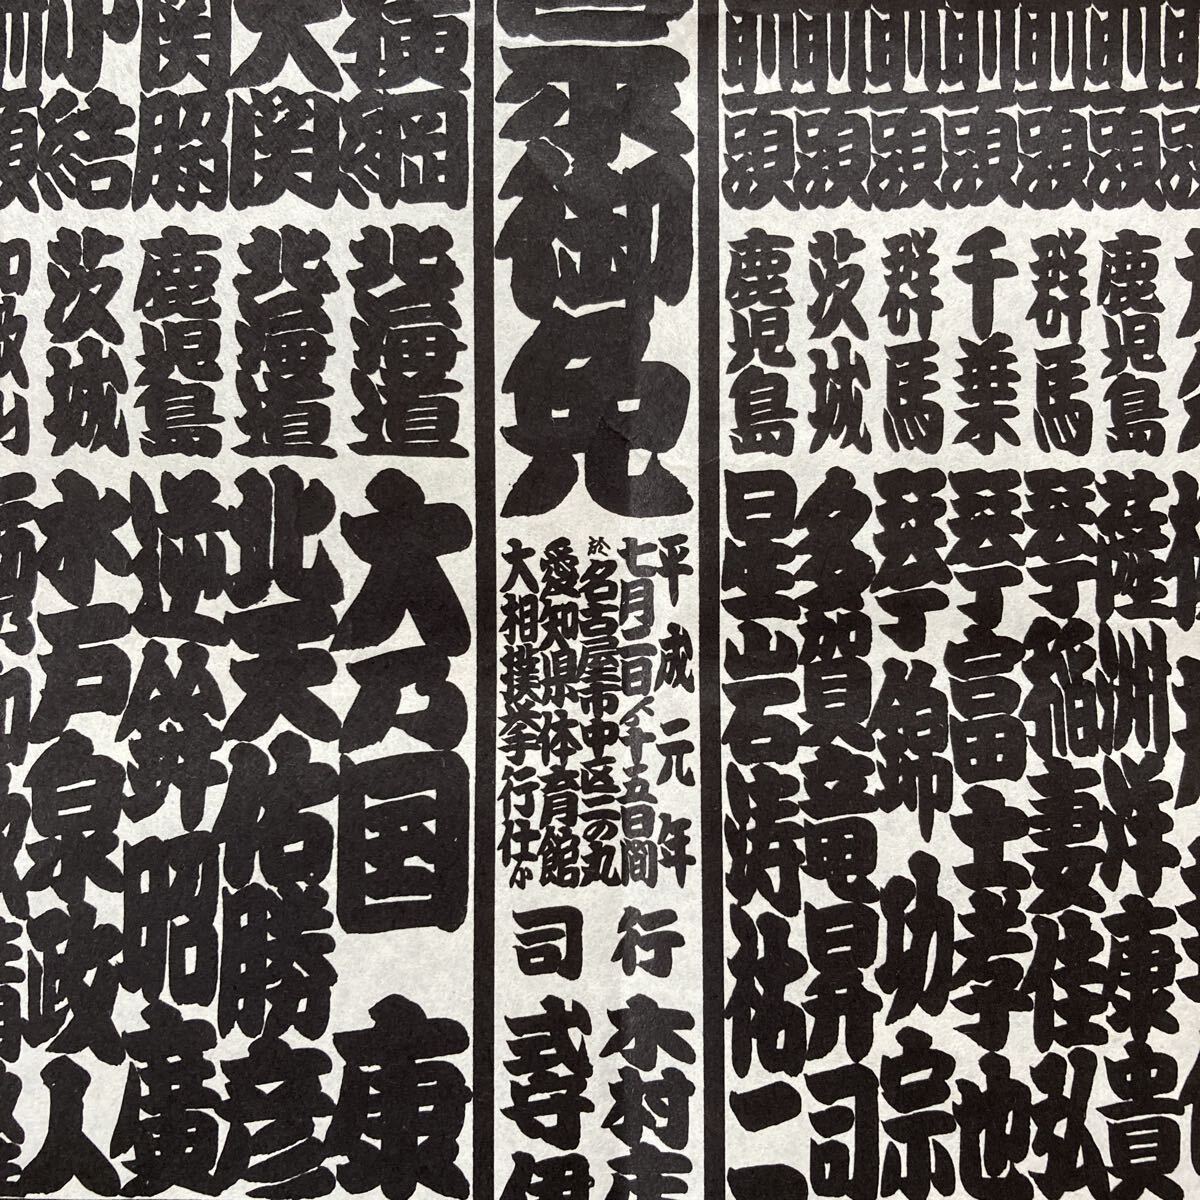 前頭 鹿児島 薩洲洋 康貴
前頭 群馬 琴稲妻 佳弘
前頭 千葉 琴富士 孝也
前頭 群馬 琴錦 功宗
前頭 茨城 多賀竜 昇司
前頭 鹿児島 星岩涛 祐二
蒙御免
平成元年
七月二日ゟ十五日間
於名古屋市中区二の丸
愛知県体育館
大相撲挙行仕候
行司
木村庄
式守伊
横綱 北海道 大乃国 康
大関 北海道 北天佑 勝彦
関脇 鹿児島 逆鉾 昭廣
小結 茨城 水戸泉 政人